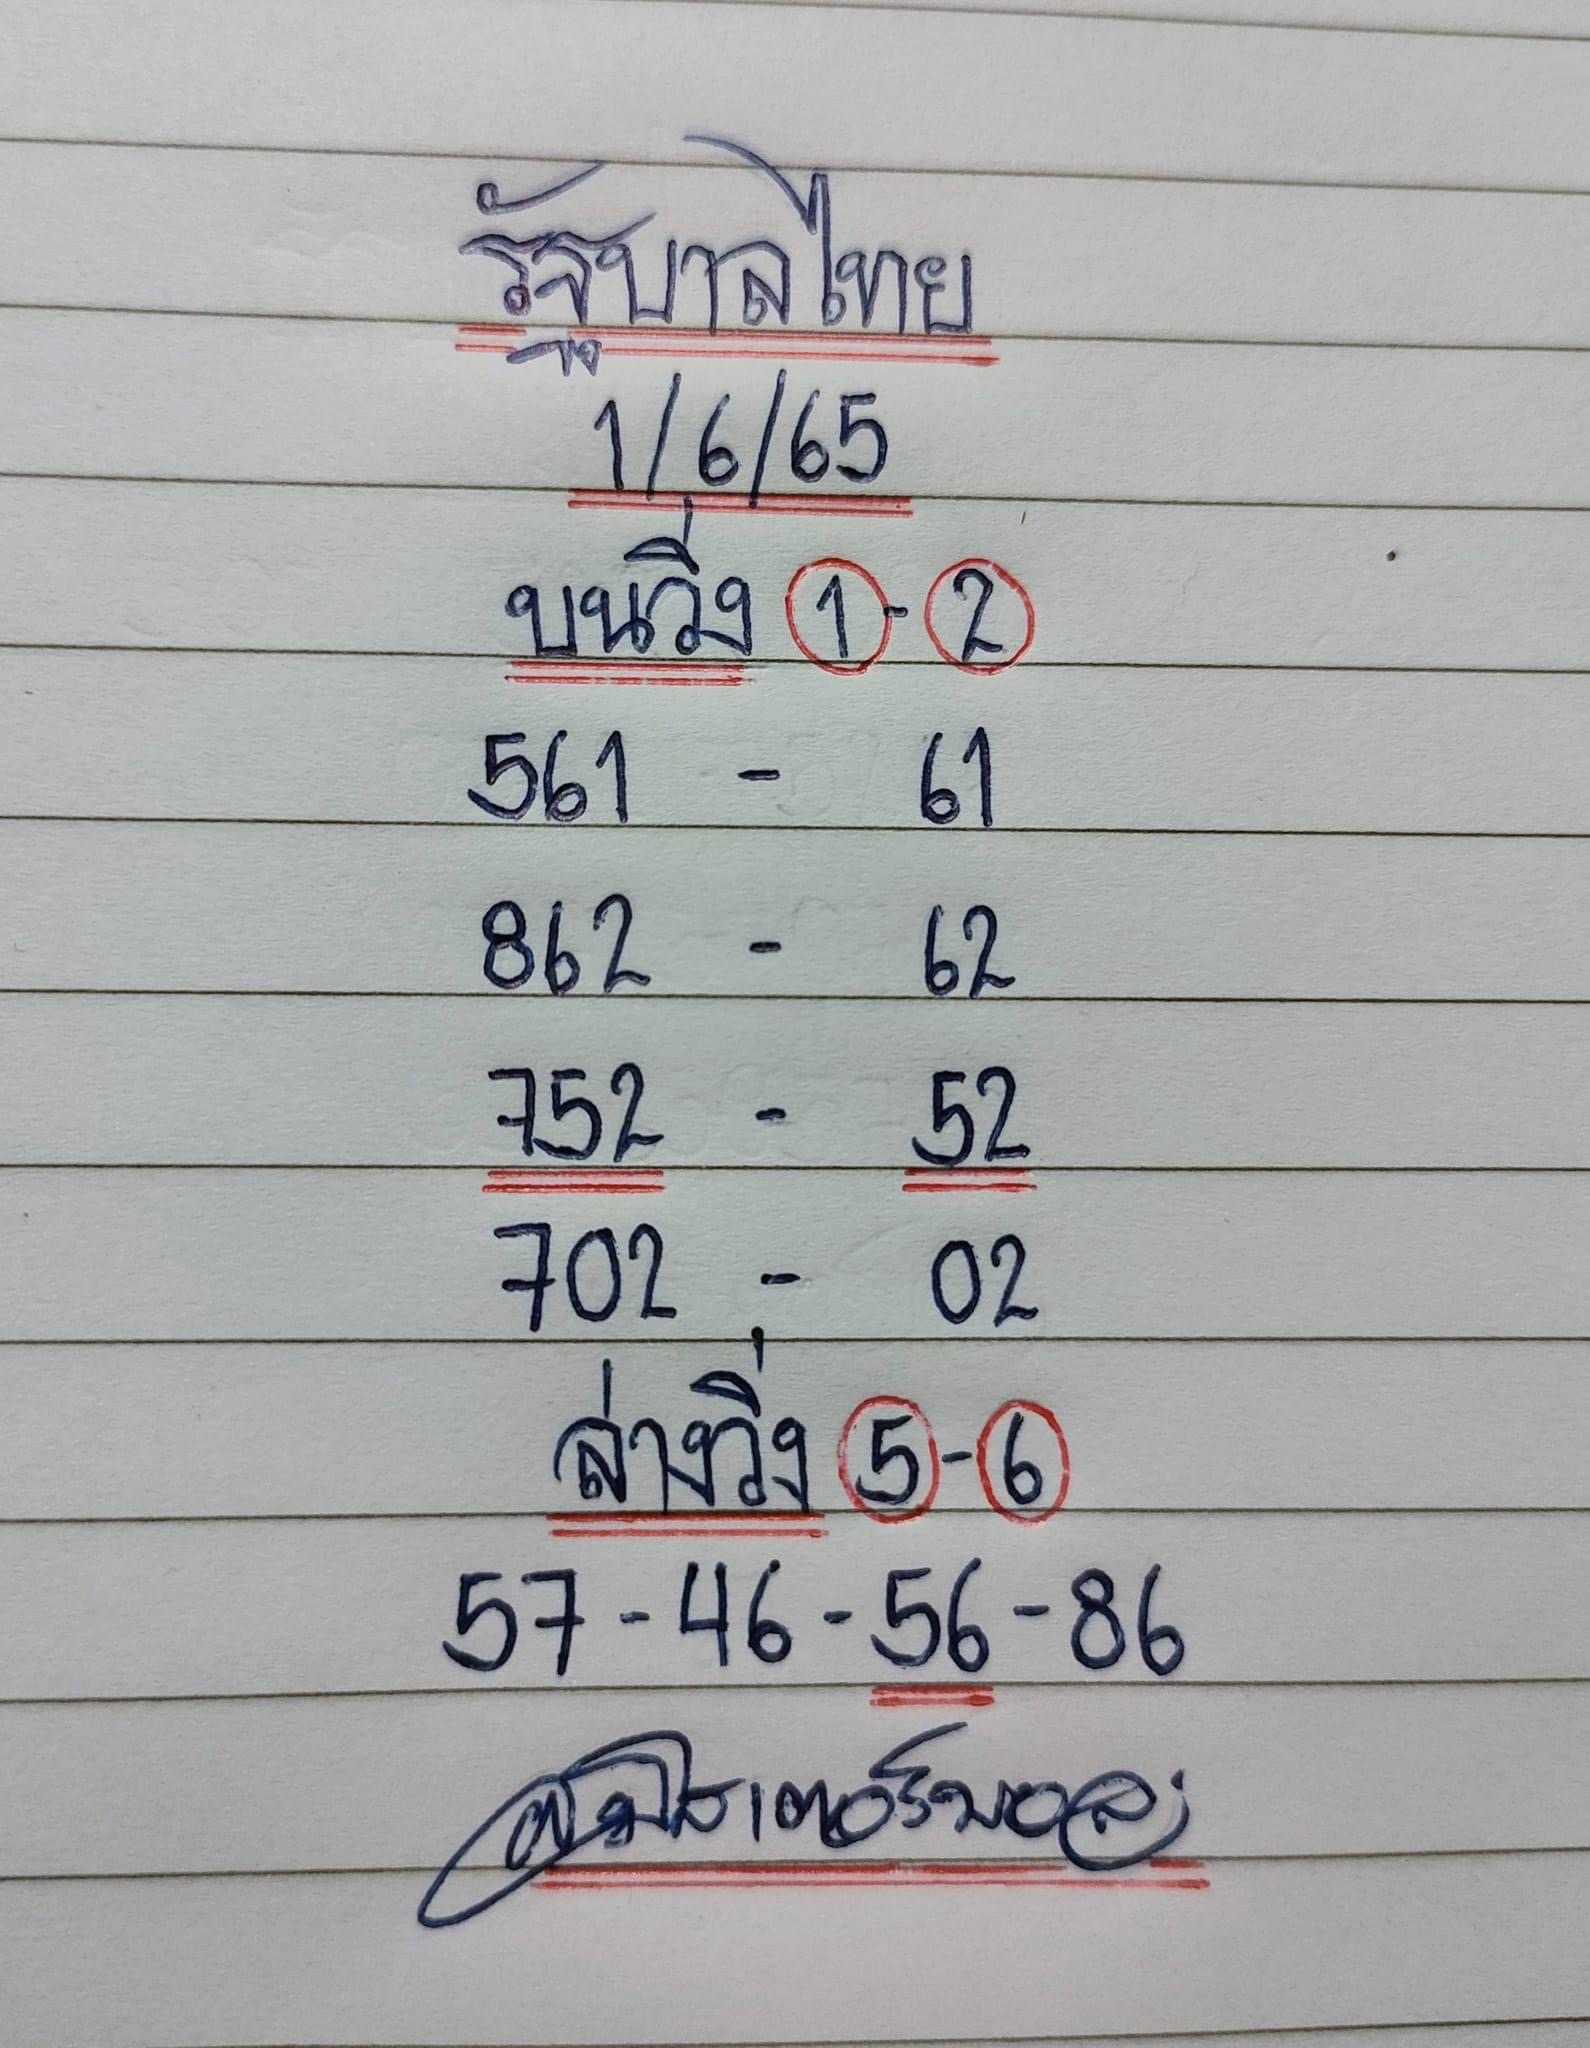 รัฐบาลไทย
1/6/65
บนวิ่ง 1-2
561 - 61
862 - 62
752 - 52
702 - 02
ล่างวิ่ง 5-6
57-46-56-86